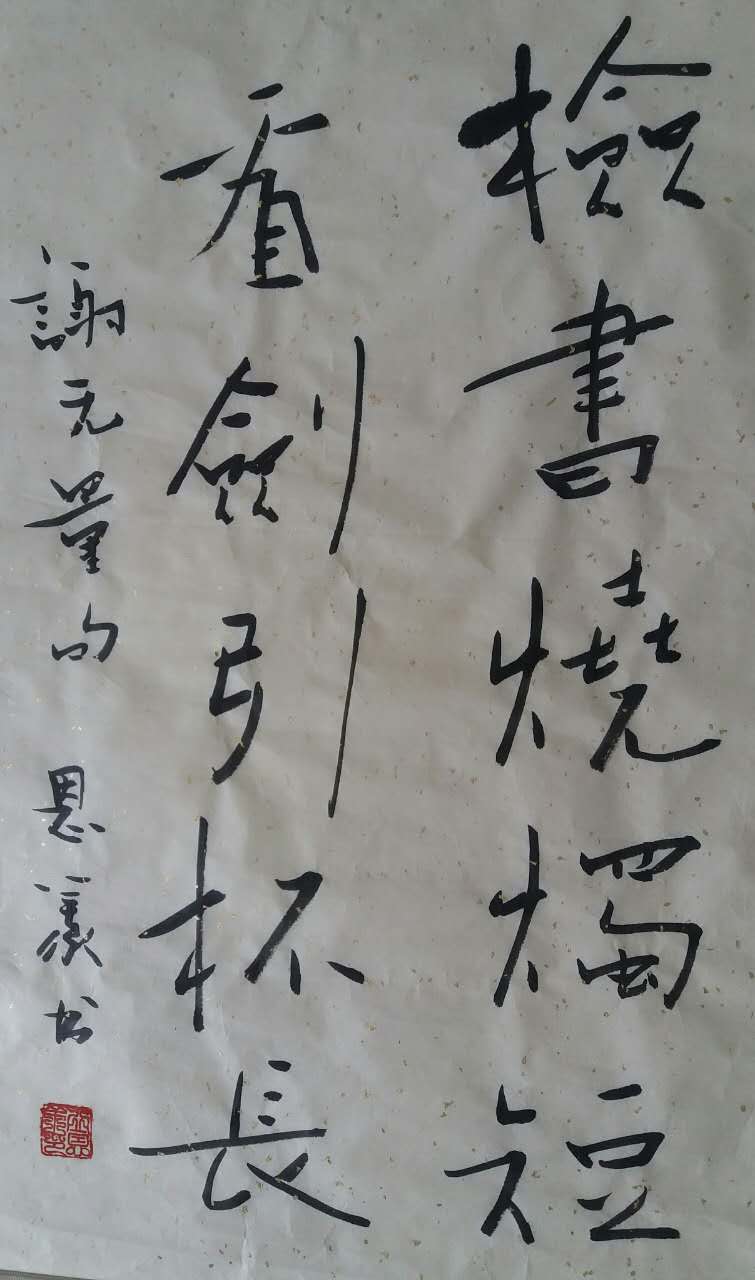 檢書燒燭短
看劍引杯長
謝无量句 恩義书